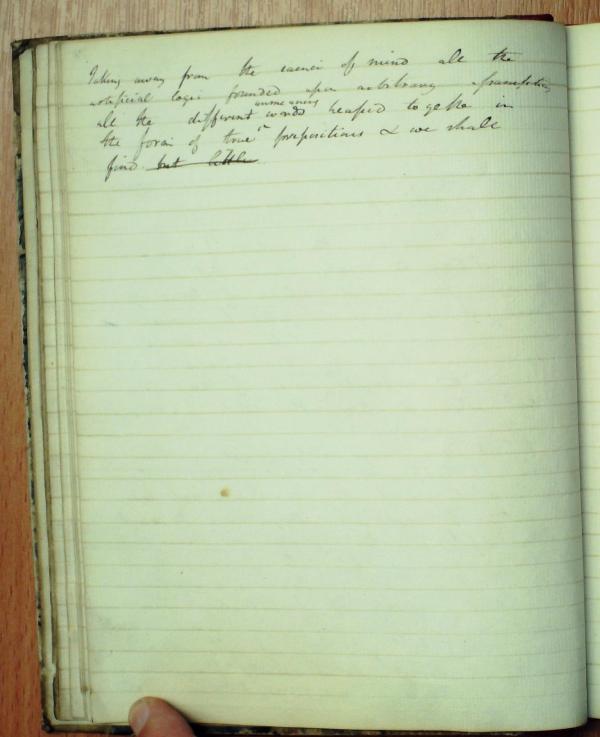 Taking away from the science of mind all the
artificial logic founded upon arbitrary assumptions
unmeaning
all the different words heaped together in
the form of true propositions & we shall
find but little